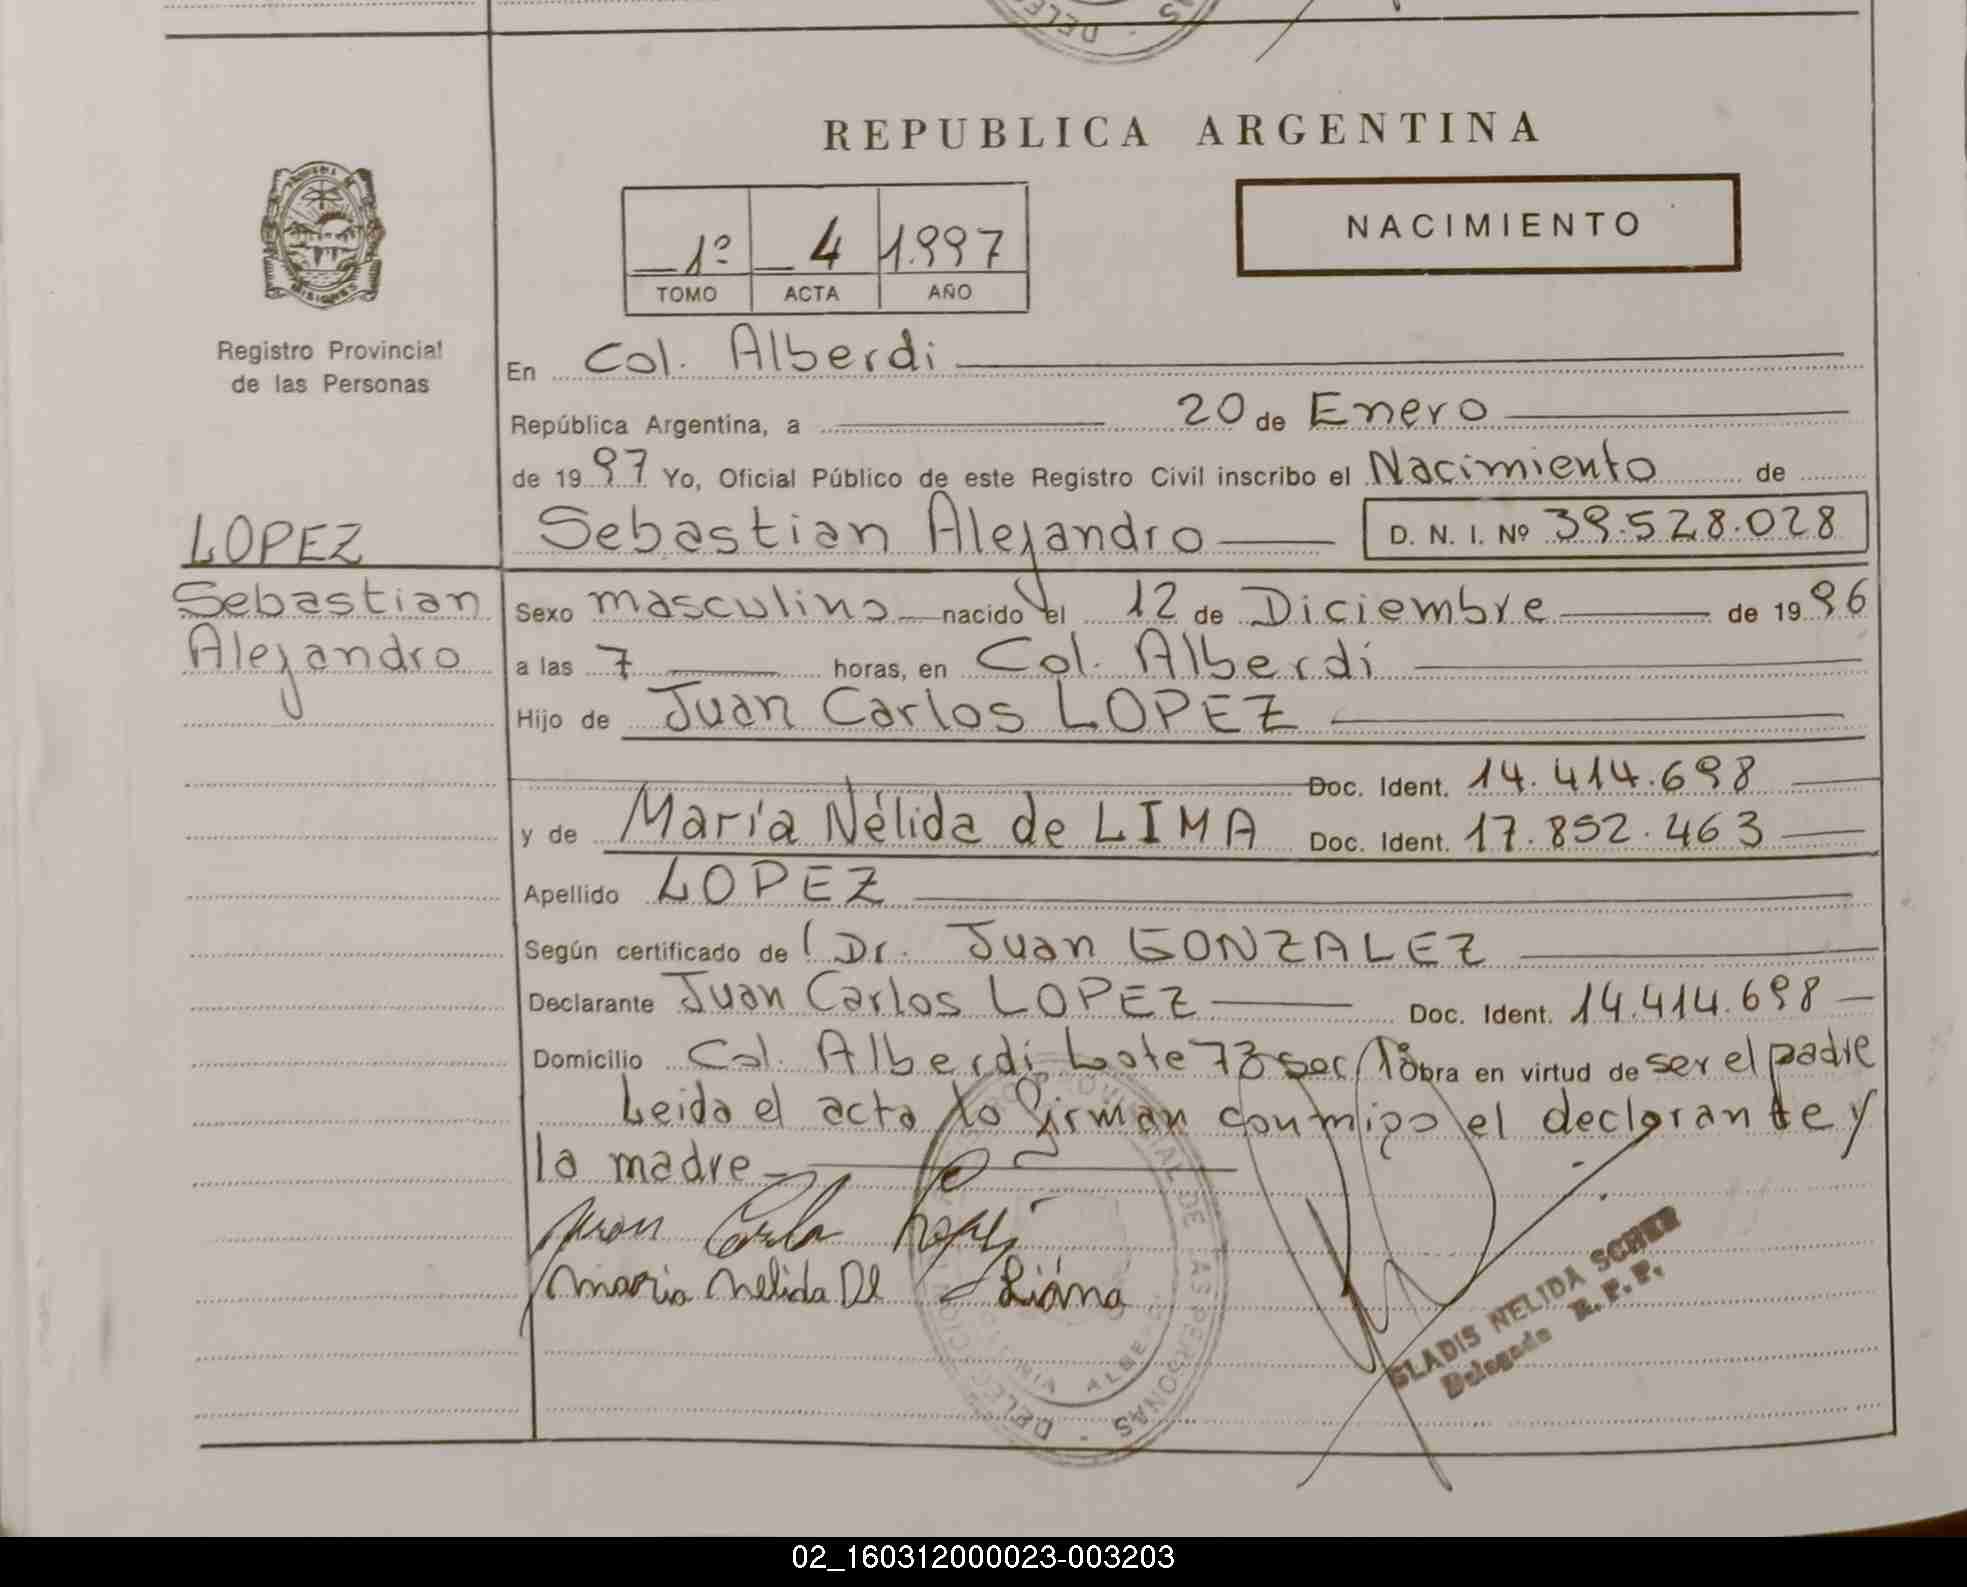 REPUBLICA ARGENTINA
NACIMIENTO
1º 4 1.997
TOMO ACTA AÑO
Registro Provincial
de las Personas
En Col. Alberdi
República Argentina, a 20 de Enero
de 1997 Yo, Oficial Público de este Registro Civil inscribo el Nacimiento de
Sebastian Alejandro D. N. I. Nº 39.528.028
LOPEZ
Sebastian
Alejandro
Sexo masculino nacido el 12 de Diciembre de 1996
a las 7 horas, en Col. Alberdi
Hijo de Juan Carlos LOPEZ
Doc. Ident. 14.414.698
y de María Nélida de LIMA Doc. Ident. 17.852.463
Apellido LOPEZ
Según certificado de Dr. Juan GONZALEZ
Declarante Juan Carlos LOPEZ Doc. Ident. 14.414.698
Domicilio Col. Alberdi Lote 73 sec 1ª Obra en virtud de ser el padre
Leida el acta lo firman conmigo el declarante y
la madre
Juan Carlos Lopez
Maria Nelida De Lima
GLADIS NELIDA SCHER
Delegada R. P. P.
DELEGACION PROVINCIAL DE LAS PERSONAS
COLONIA ALBERDI
02_160312000023-003203